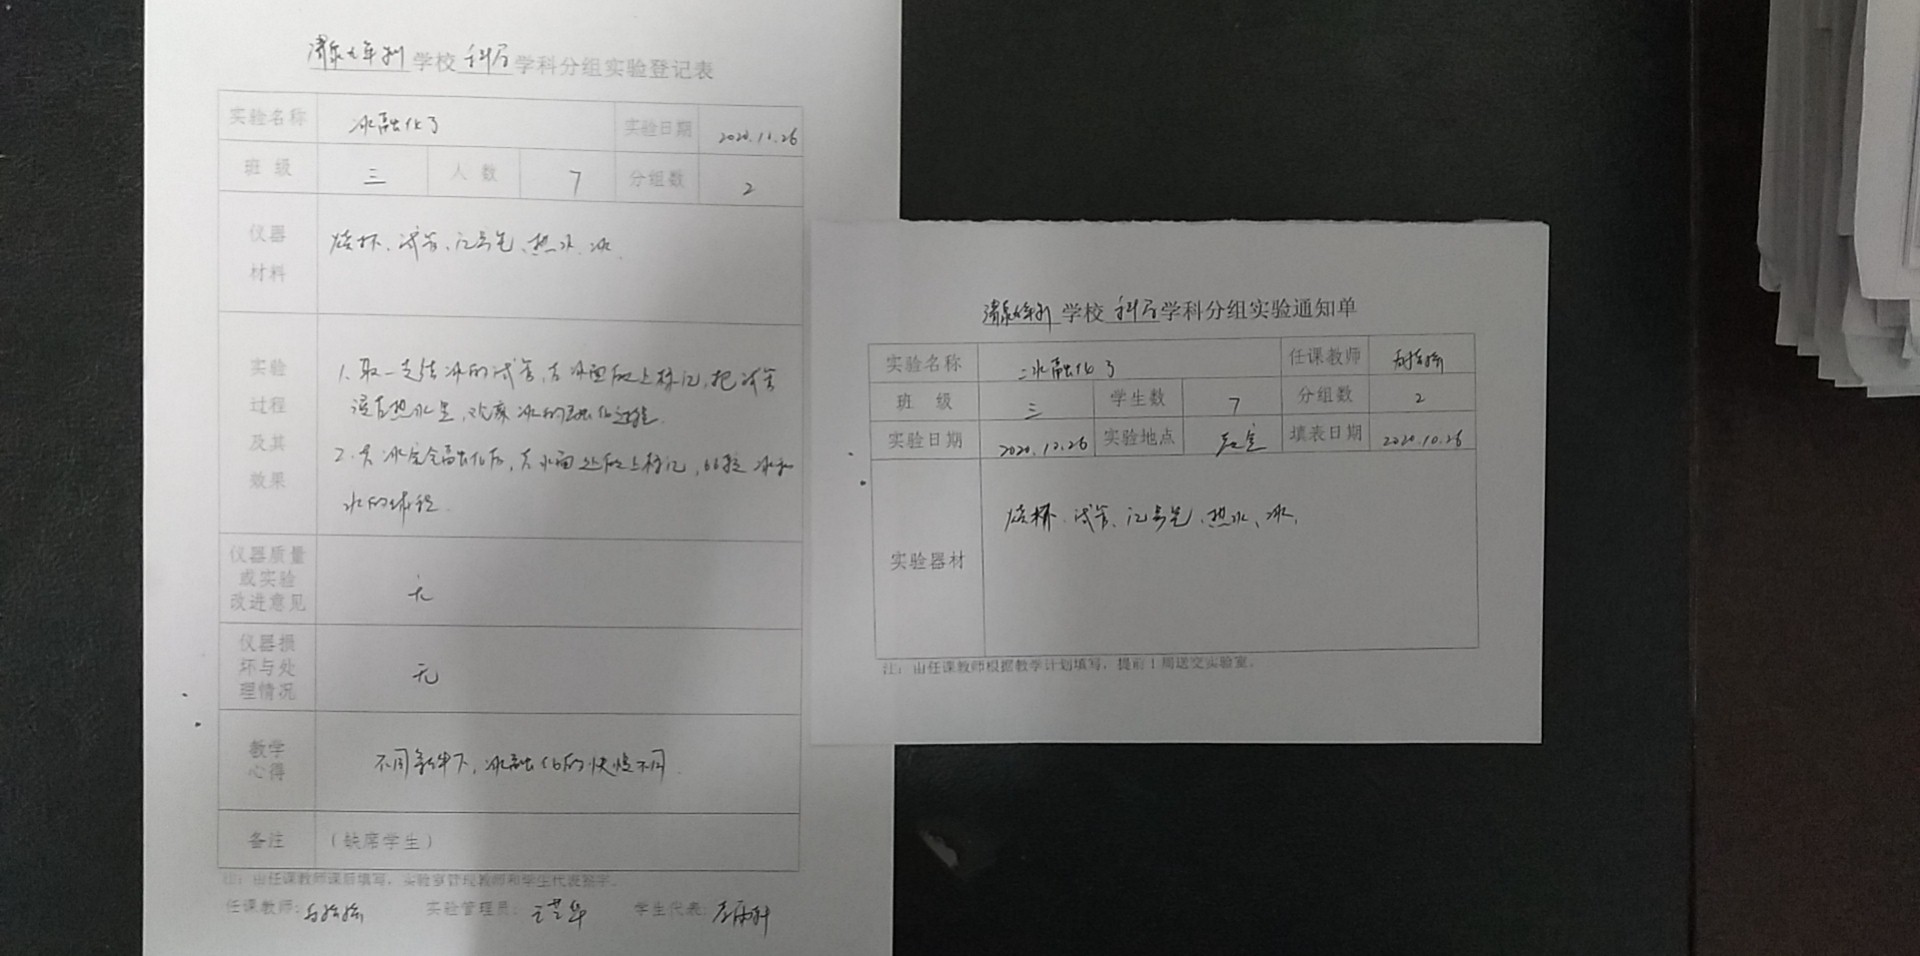 学校科学学科分组实验登记表
实验名称 冰融化了 实验日期 2020.11.26
班 级 三 人 数 7 分组数 2
仪器
材料
烧杯、试管、记号笔、热水、冰。
实验
过程
及其
效果
1、取一支结冰的试管,在冰面做上标记,把试管
浸在热水里,观察冰的融化过程。
2、在冰完全融化后,在水面处做上标记,比较冰和
水的体积。
仪器质量
或实验
改进意见
无
仪器损
坏与处
理情况
无
教学
心得
不同条件下,冰融化的快慢不同。
备注 (缺席学生)
注:由任课教师课后填写,实验室管理教师和学生代表签字。
任课教师: 实验管理员: 学生代表:
学校科学学科分组实验通知单
实验名称 冰融化了 任课教师
班 级 三 学生数 7 分组数 2
实验日期 实验地点 填表日期 2020.10.26
实验器材
烧杯、试管、记号笔、热水、冰、
注:由任课教师根据教学计划填写,提前1周送交实验室。